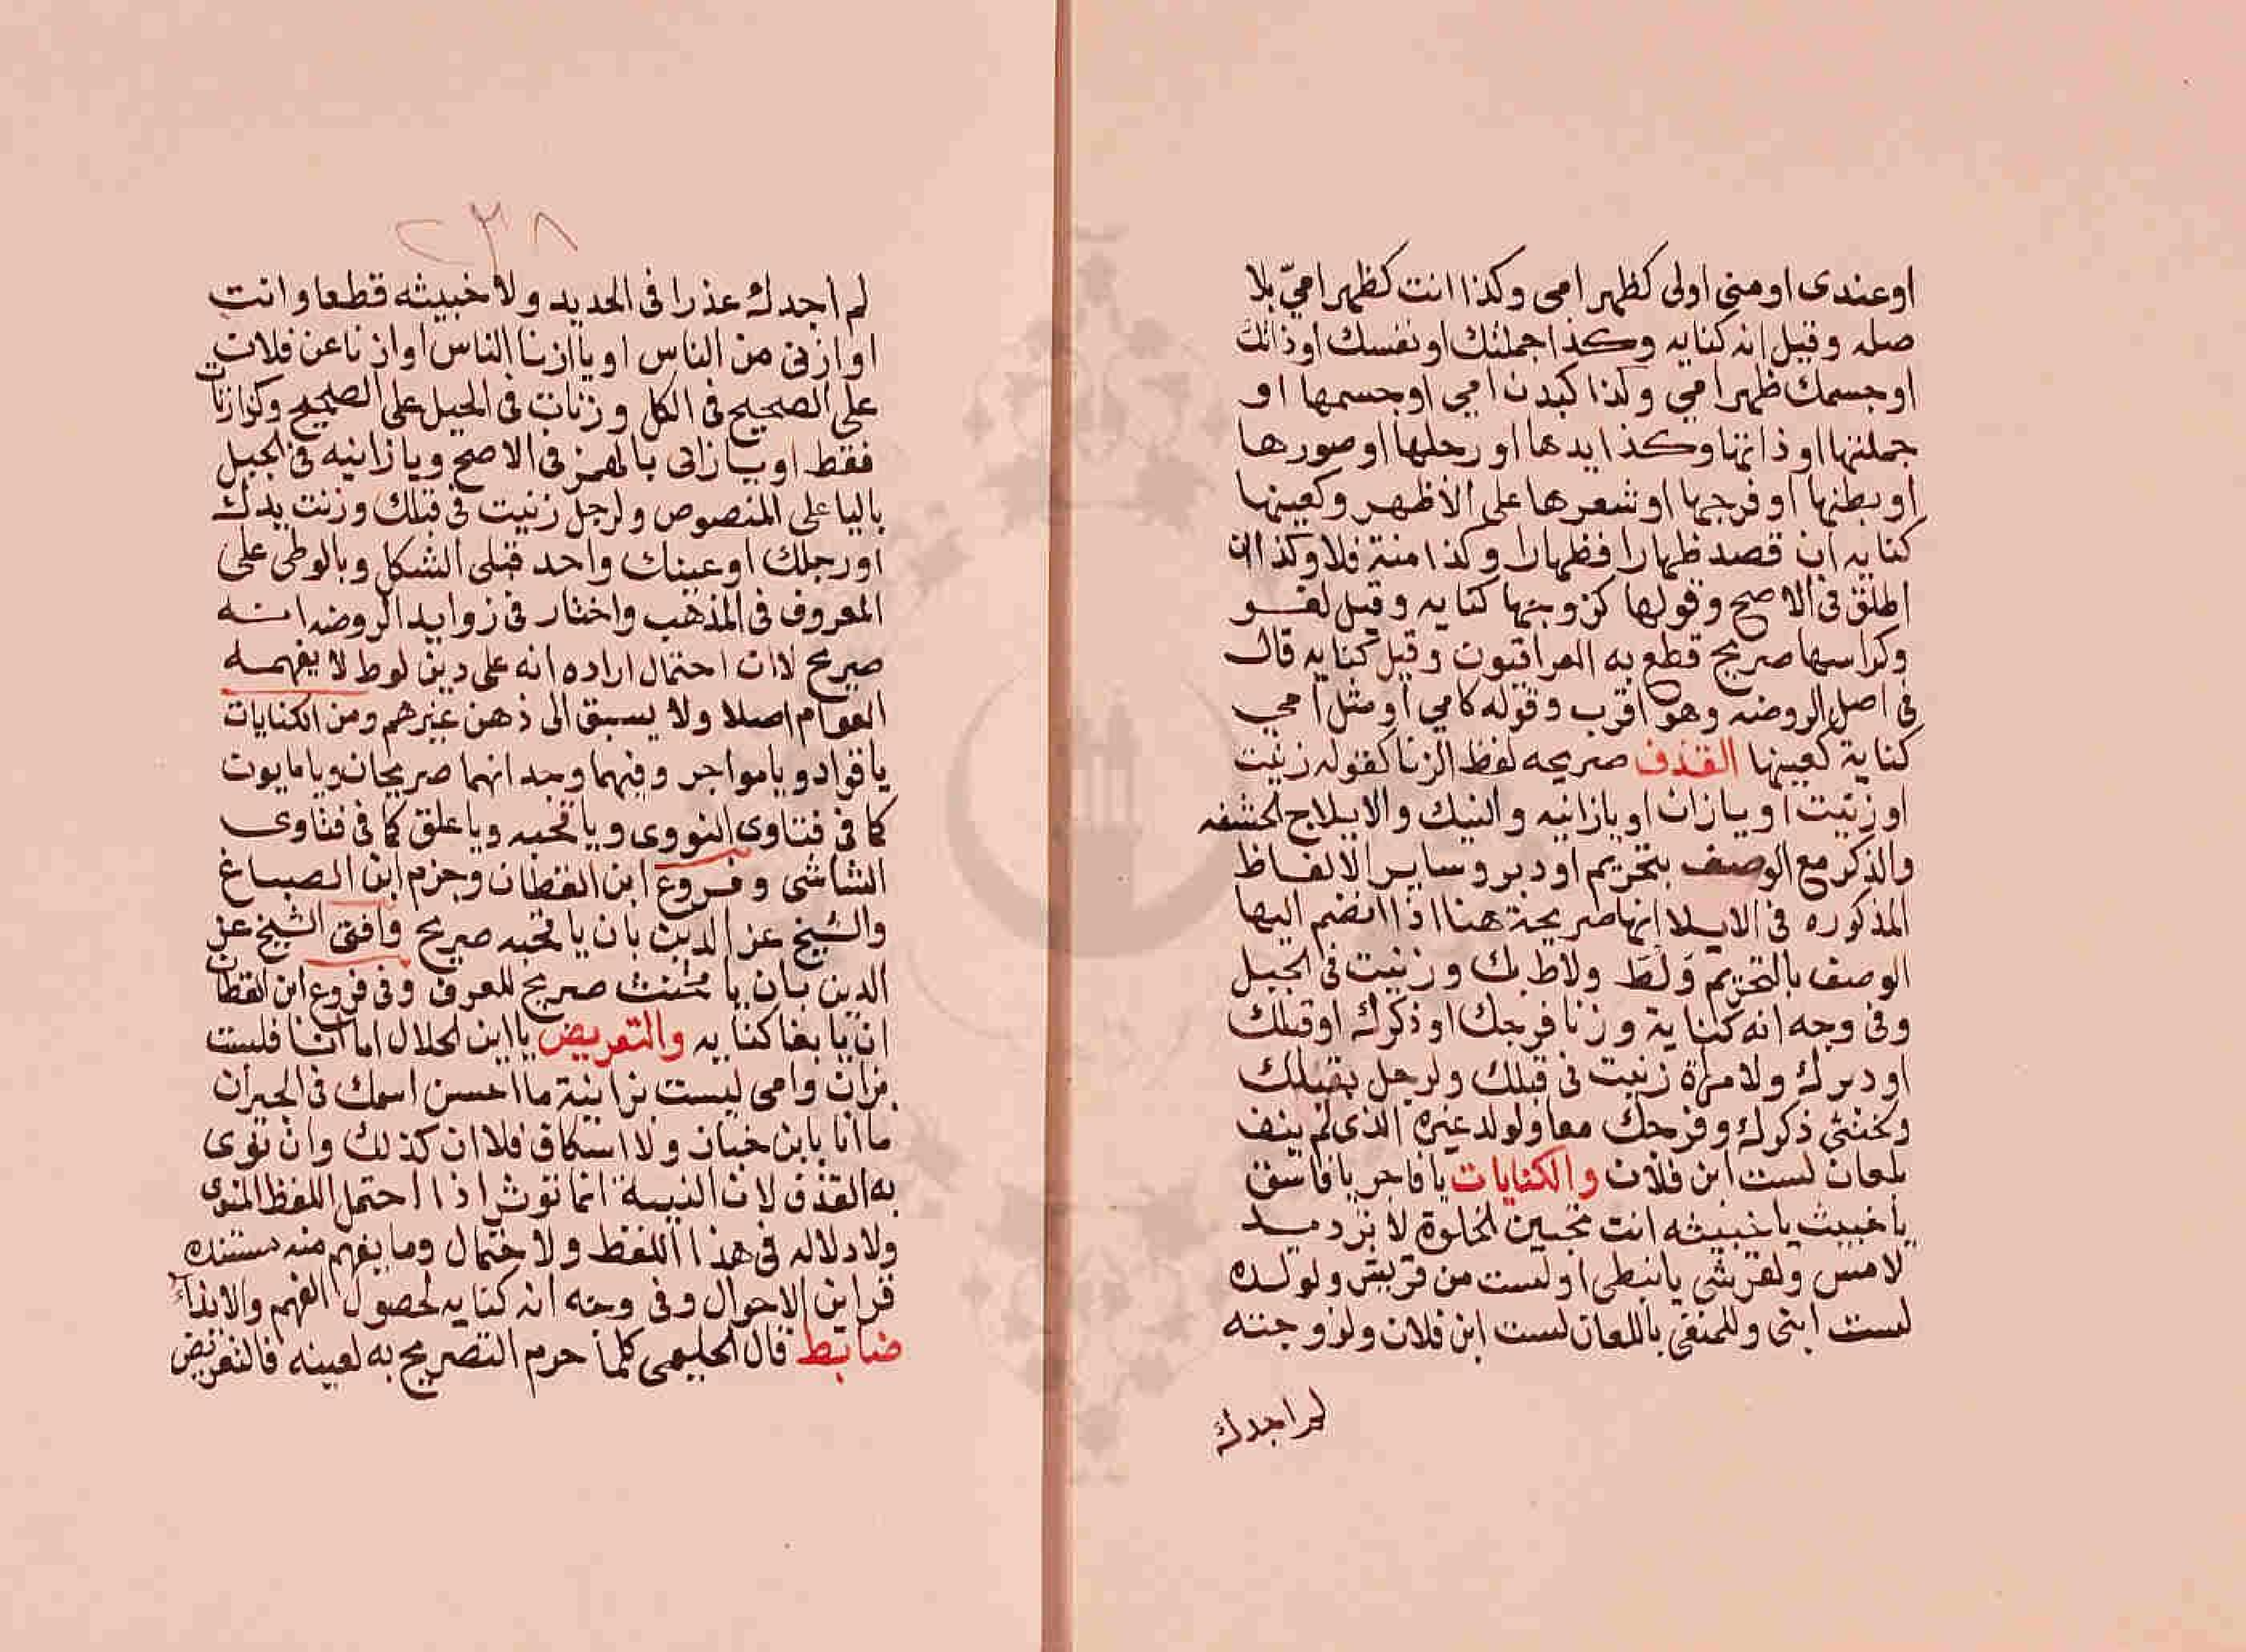 او عندى او منى او لى كظهر امى وكذا انت كظهر اميّ بلا
صله وقيل انه كنايه وكذا جملتك او نفسك او ذاتك
او جسمك ظهر امي وكذا كبدن امي او جسمها او
جملتها او ذاتها وكذا يدها او رجلها او صورها
او بطنها او فرجها او شعرها على الاظهر وكعينها
كنايه ان قصد ظهارا فظهارا وكذا منة فلا وكذا ان
اطلق فى الاصح وقولها كزوجها كنايه وقيل لغو
وكراسها صريح قطع به العراقيون وقيل كنايه قال
فى اصل الروضه وهو اقرب وقوله كامي او مثل امي
كناية كعينها القذف صريحه لفظ الزنا كقوله زنيت
او زنيت او يا زان او يا زانيه والنيك والايلاج لحشفه
والذكر مع الوصف بتحريم او دبر وساير الالفاظ
المذكوره فى الايلا انها صريحة هنا اذا انضم اليها
الوصف بالتحريم وَلَطَ ولاط بك وزنيت فى الجبل
وفى وجه انه كناية وزنا فرجك او ذكرك او قبلك
او دبرك ولامراة زنيت فى قبلك ولرجل بقبلك
وكخنثى ذكرك وفرجك معا ولولد غيره الذى لم ينف
بلعان لست ابن فلان والكنايات يا فاجر يا فاسق
يا خبيث يا خبيثه انت تحبين الخلوة لا تردين يد
لامس ولقرشى يا نبطى او لست من قريش ولولده
لست ابنى وللمنفى باللعان لست ابن فلان ولزوجته
لم اجدك
٢٣٨
لم اجدك عذرا فى الجديد ولا خبيثه قطعا وانت
او ازنى من الناس او يا ازنا الناس او ازنا عن فلان
على الصحيح فى الكل وزنات فى الجبل على الصحيح وكذا زنات
فقط او يا زانى بالهمز فى الاصح ويا زانيه فى الجبل
باليا على المنصوص ولرجل زنيت فى قبلك وزنت يدك
او رجلك او عينك واحد قبلى الشكل وبالوطى على
المعروف فى المذهب واختار فى زوايد الروضه انه
صريح لان احتمال اراده انه على دين لوط لا يفهمه
العوام اصلا ولا يسبق الى ذهن غيرهم ومن الكنايات
يا قواد ويا مواجر وفيهما وجه انهما صريحان ويا مابون
كما فى فتاوى النووى ويا قحبه ويا علق كما فى فتاوى
الشاشى وفروع ابن القطان وجزم ابن الصباغ
والشيخ عز الدين بان يا قحبه صريح وافتى الشيخ عز
الدين بان يا مخنث صريح للعرف وفى فروع ابن القطان
ان يا بغا كنايه والتعريض يا ابن الحلال اما انا فلست
بزان وامى ليست بزانية ما احسن اسمك فى الجيران
ما انا بابن خباز ولا اسكاف فلا ان كذلك وان نوى
به القذف لان النيية انما توثر اذا احتمل اللفظ المنوى
ولا دلاله فى هذا اللفظ ولا احتمال وما يفهم منه مستنده
قراين الاحوال وفى وجه انه كنايه لحصول الفهم والايذاء
ضابط قال الحليمى كلما حرم التصريح به لعينه فالتعريض